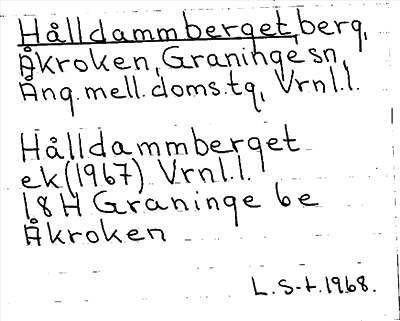 Hålldammberget, berg,
Åkroken, Graninge sn,
Ång. mell. doms. tg, Vrnl.l.
Hålldammberget
ek(1967) Vrnl.l.
18H Graninge 6e
Åkroken
L. S-t. 1968.